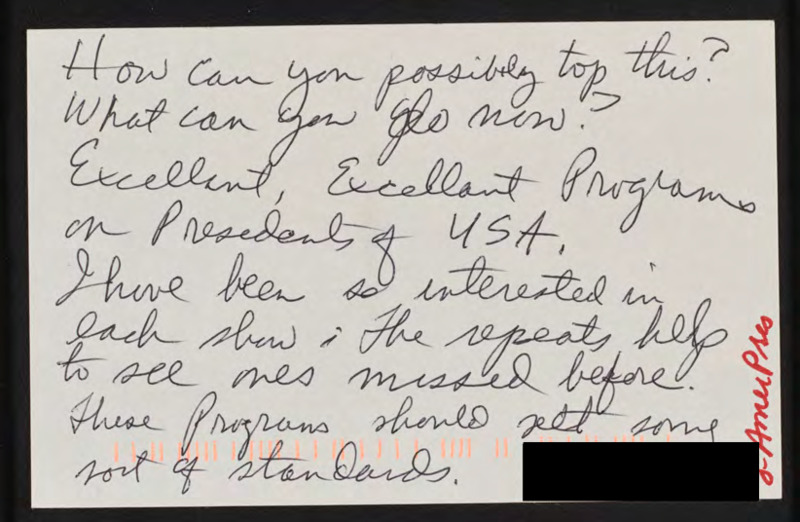 How can you possibly top this?
What can you do now?
Excellant, Excellant Programs
on Presedents of USA.
I have been so interested in
each show ; The repeats help
to see ones missed before.
These Programs should sett some
sort of standards.
J-AmerPres